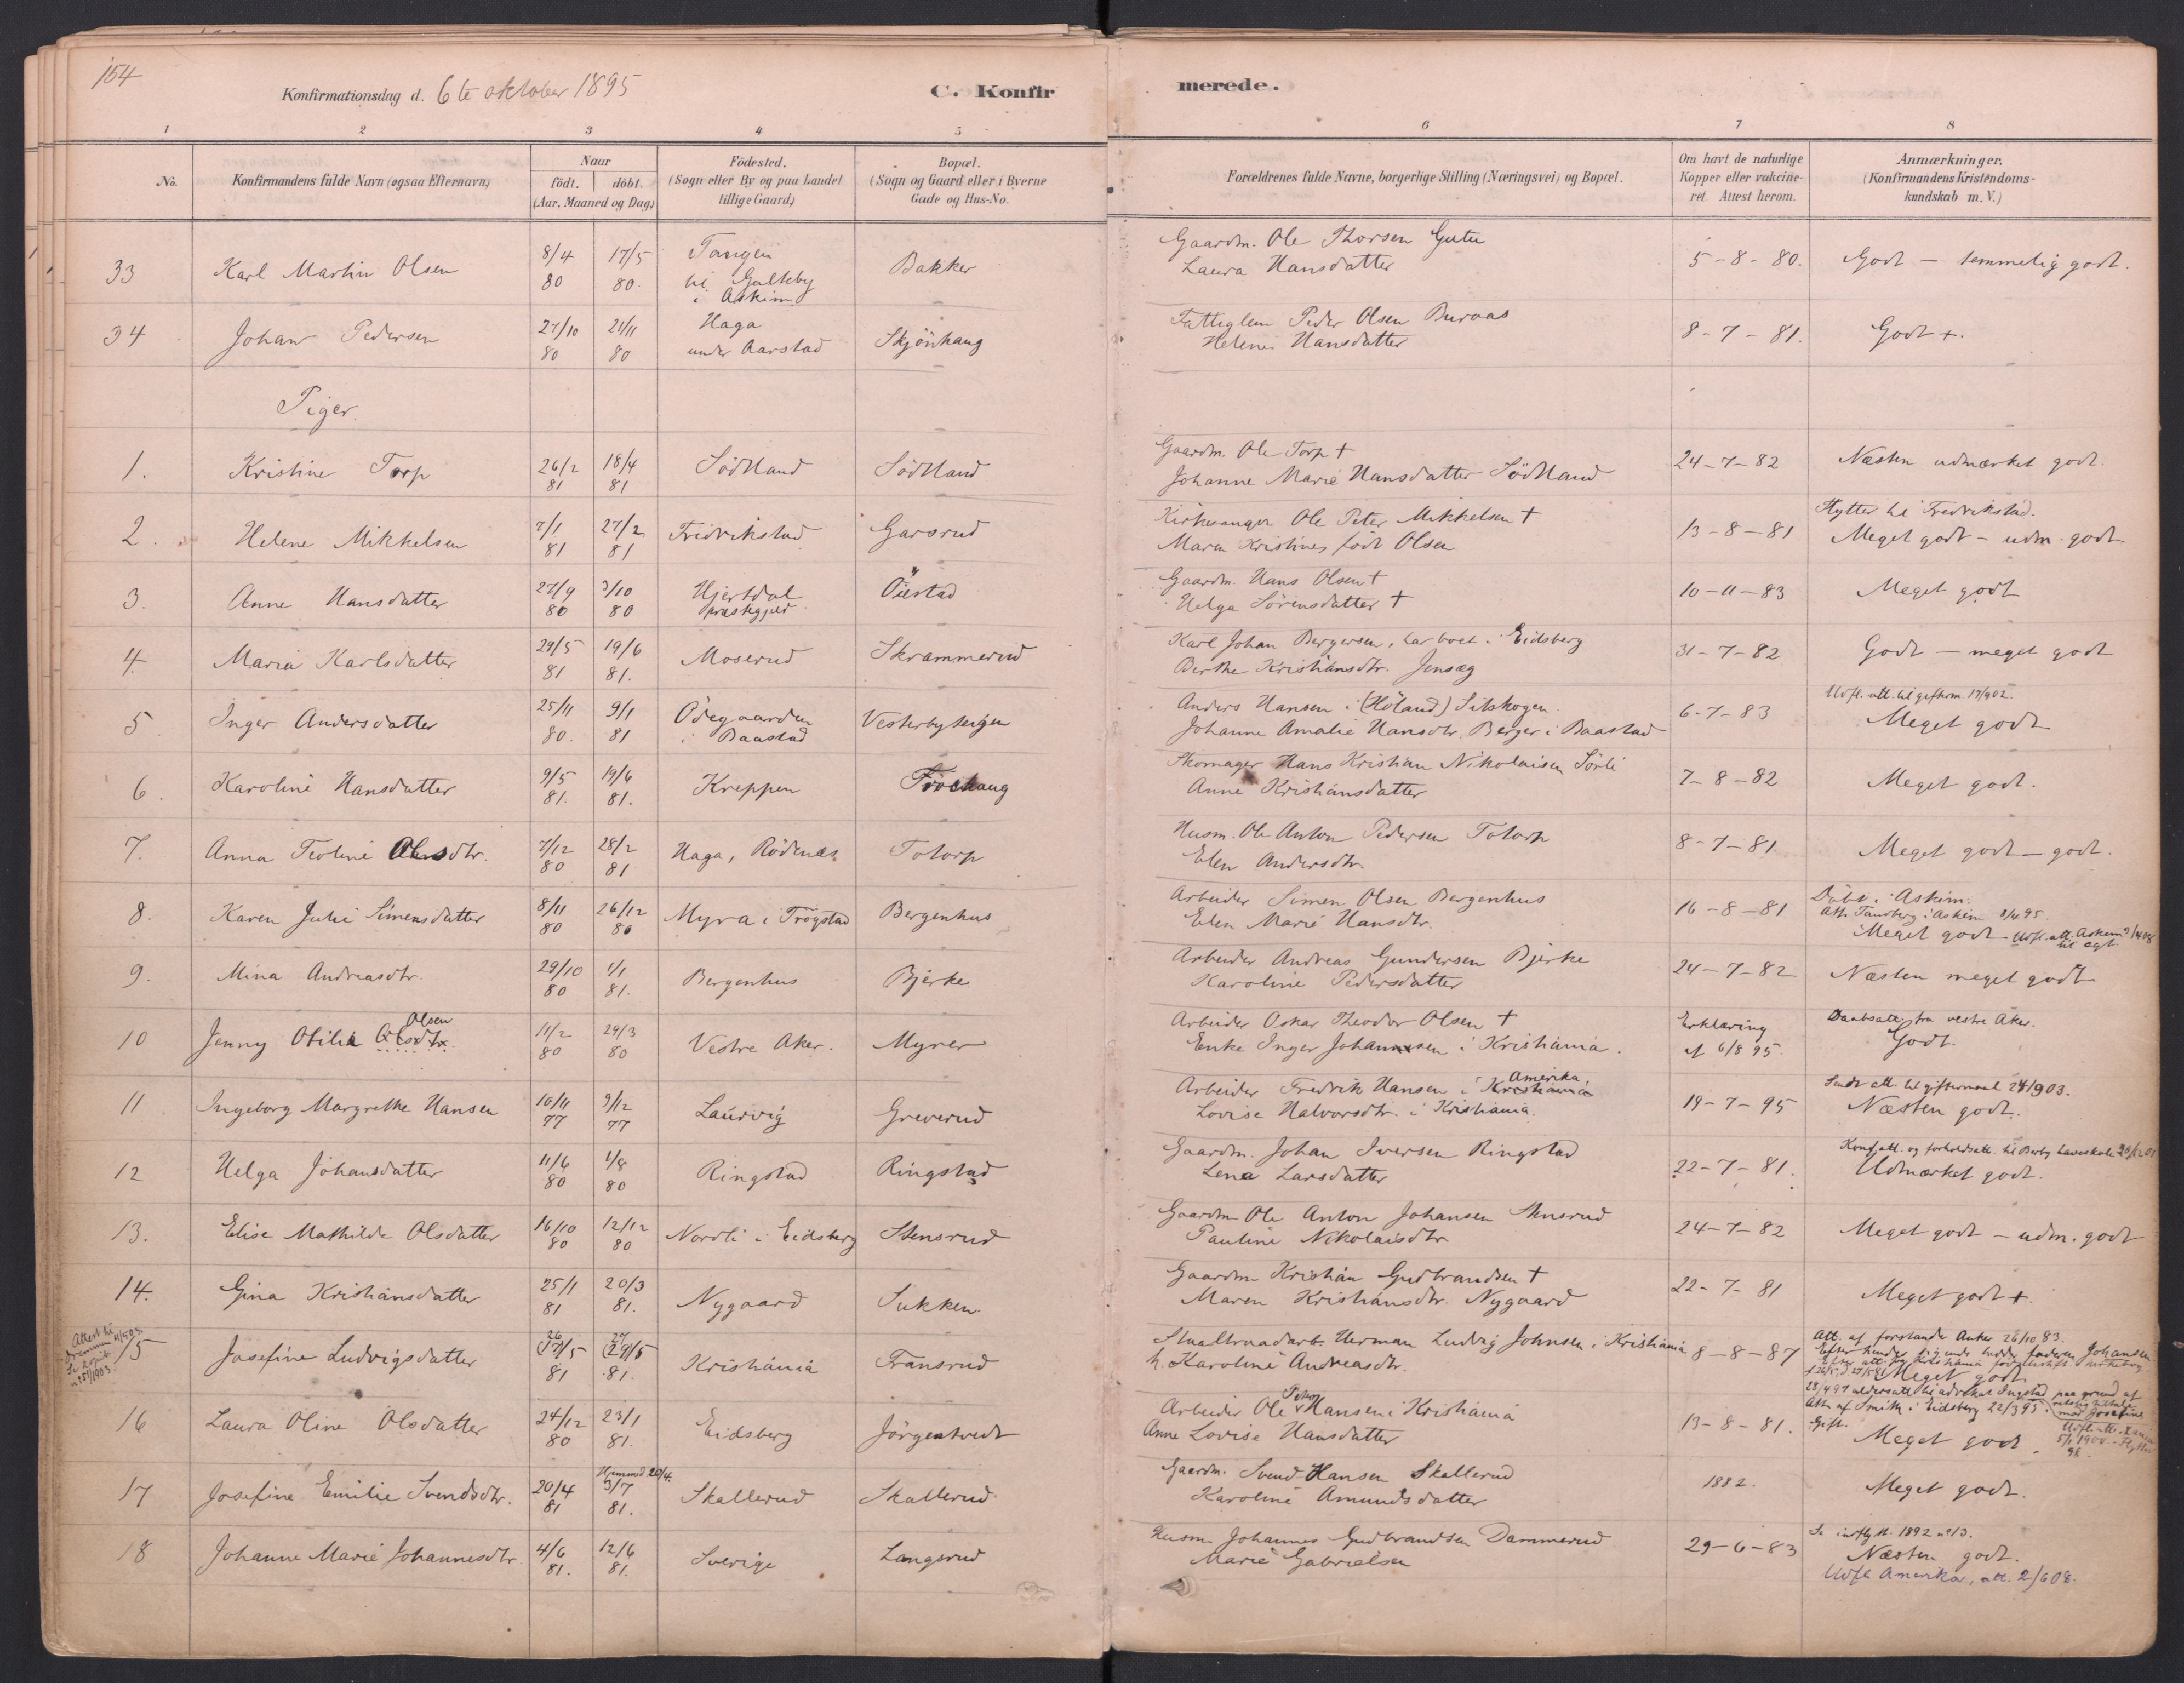 154
Konfirmationsdag d. 6te oktober 1895
C. Konfirmerede.
1 2 3 4 5 6 7 8
No.
Konfirmandens fulde Navn (ogsaa Efternavn)
Naar
födt. döbt.
(Aar, Maaned og Dag)
Födested.
(Sogn eller By og paa Landet
tillige Gaard)
Bopæl.
(Sogn og Gaard eller i Byerne
Gade og Hus-No.
Forældrenes fulde Navne, borgerlige Stilling (Næringsvei) og Bopæl.
Om havt de naturlige
Kopper eller vakcine-
ret. Attest herom.
Anmærkninger.
(Konfirmandens Kristendoms-
kundskab m. V.)
33 Karl Martin Olsen 8/4 80 17/5 80. Tangen
i Askim
Bakker
Gaardm. Ole Thorsen
Laura Hansdatter
5-8-80. Godt - temmelig godt.
34 Johan Pedersen 27/10 80 21/11 80 Haga
under Aarstad
Skjönhaug
Fattiglem Peder Olsen Buraas
Helene Hansdatter
8-7-81. Godt +.
Piger.
1. Kristine Torp 26/2 81 18/4 81 Södtland Södtland
Gaardm. Ole Torp †
Johanne Marie Hansdatter Södtland
24-7-82 Næsten udmærket godt.
2. Helene Mikkelsen 7/1 81 27/2 81 Fredrikstad Garsrud
Kirkesanger Ole Peter Mikkelsen †
Maren Kristines födt Olsen
13-8-81 Flytter til Fredrikstad.
Meget godt - udm. godt
3. Anne Hansdatter 27/9 80 3/10 80 Hjertdal
præstegjeld
Öiestad
Gaardm. Hans Olsen †
Helga Sörensdatter †
10-11-83 Meget godt
4. Maria Karlsdatter 29/5 81 19/6 81. Moserud Skrammerud
Karl Johan Bergersen, har boet i Eidsberg
Berthe Kristiansdtr. Jensæg
31-7-82 Godt - meget godt
5. Inger Andersdatter 25/11 80. 9/1 81 Ödegaarden
i Baastad
Vesterbyteigen
Anders Hansen i (Höland) Setskogen
Johanne Amalie Hansdtr. Berger i Baastad
6-7-83 Udfl. att. til gifterm 17/902.
Meget godt
6. Karoline Hansdatter 9/5 81. 19/6 81. Kreppen Fröshaug
Skomager Hans Kristian Nikolaisen Sörli
Anne Kristiansdatter
7-8-82 Meget godt.
7. Anna Teoline Olesdtr. 7/12 80 28/2 81 Haga, Rödenæs Totorp
Husm. Ole Anton Pedersen Totorp
Elen Andersdtr.
8-7-81 Meget godt - godt.
8. Karen Julie Simensdatter 8/11 80 26/12 80 Myra i Trögstad Bergenhus
Arbeider Simen Olsen Bergenhus
Elen Marie Hansdtr.
16-8-81 Döbt i Askim.
Att. Tandberg i Askim 8/4 95.
Meget godt Udfl. att. Askim
til egt
9. Mina Andreasdtr. 29/10 80 1/1 81. Bergenhus Bjerke
Arbeider Andreas Gundersen Bjerke
Karoline Pedersdatter
24-7-82 Næsten meget godt
10 Jenny Otilie Olsdtr. Olsen 11/2 80 29/3 80 Vestre Aker. Myrer
Arbeider Oskar Theodor Olsen †
Enke Inger Johannesen i Kristiania.
Erklæring
af 6/8 95.
Daabsatt. fra vestre Aker.
Godt.
11 Ingeborg Margrethe Hansen 10/11 77 9/12 77 Laurvig Greverud
Arbeider Fredrik Hansen i Kristiania Amerika
Lovise Halvorsdtr. i Kristiania.
19-7-95 Sendt att. til giftermaal 24/903.
Næsten godt.
12 Helga Johansdatter 11/6 80 1/8 80 Ringstad Ringstad
Gaardm. Johan Iversen Ringstad
Lena Larsdatter
22-7-81. Konf. att. og forholdsatt. til Berby
Udmærket godt.
13. Elise Mathilde Olsdatter 16/10 80 12/12 80 Nordli i Eidsberg Stensrud
Gaardm. Ole Anton Johansen Stensrud
Pauline Nikolaisdtr.
24-7-82 Meget godt - udm. godt
14. Gina Kristiansdatter 25/1 81 20/3 81. Nygaard Sukken
Gaardm Kristian Gudbrandsen †
Maren Kristiansdtr. Nygaard
22-7-81 Meget godt +.
15 Josefine Ludvigsdatter 81 81. Kristiania Fransrud
Staaltraadarb. Herman Ludvig Johnsen i Kristiania
h. Karoline Andreasdtr.
8-8-87 Att. af forstander Anker 26/10 83.
Efter hendes sigende hedder faderen Johansen
Meget godt
16 Laura Oline Olsdatter 24/12 80 23/1 81. Eidsberg Jörgentvedt
Arbeider Ole Peter Hansen i Kristiania
Anne Lovise Hansdatter
13-8-81. Att. af Smith i Eidsberg 22/3 95.
Gift.
Meget godt.
17 Josefine Emilie Svendsdtr. 20/4 81 Hjemmed. 20/4. 3/7 81. Skallerud Skallerud
Gaardm. Svend Hansen Skallerud
Karoline Amundsdatter
1882. Meget godt.
18 Johanne Marie Johannesdtr. 4/6 81. 12/6 81. Sverige Langsrud
Husm. Johannes Gudbrandsen Dammerud
Marie Gabrielsen
29-6-83 Se indfl. 1892 no 13.
Næsten godt.
Udfl. Amerika, att. 2/6 08.